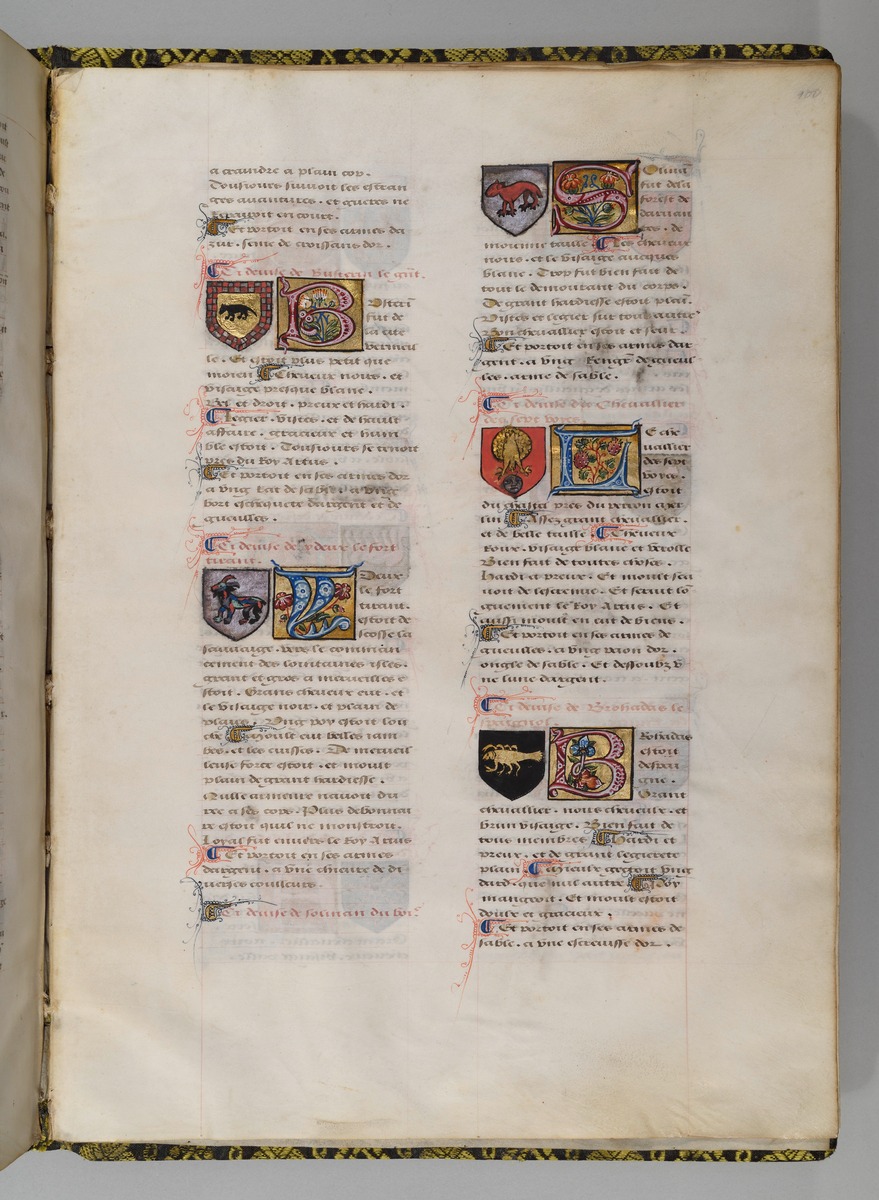 a craindre a plain cop.
Tousiours suiuoit les estran
ges auantures. et gueres ne
seiournoit en court.
Et portoit en ses armes da
zur. seme de croissans dor.
Ci deuise de Busterin le grãt.
Bsterĩ
fut de
la cite
vermeil
le. Et estoit plus petit que
moien. Cheueux noirs. et
visaige presque blanc.
Bel et droit. preux et hardi.
Legier. vistes. et de hault
affaire. gracieux et hum
ble estoit. Tousiours se tenoit
pres du Roy Artus.
Et portoit en ses armes dor
a vng kat de sable. a vng
bort eschequete dargent et de
gueulles.
Ci deuise de ydeux le fort
tirant.
Ydeux
le fort
tirant.
estoit de
scosse la
sauuaige. vers le commen
cement des lointaines isles.
grant et gros a merueilles e
stoit. Grans cheueux eut. et
le visaige noir. et plain de
playes. Vng poy estoit lou
che. Moult eut belles iam
bes. et les cuisses. De merueil
leuse force estoit. et moult
plain de grant hardiesse.
Nulle armeure nauoit du
ree a ses cops. Plus debonnai
re estoit quil ne monstroit.
Loyal fut enuers le Roy Artus
Et portoit en ses armes
dargent. a vne chieure de di
uerses couleurs.
Ci deuise de solinan du bois.
Solinã
fut de la
forest de
darnan
tes. de
moienne taille. Les cheueux
noirs. et le visaige aucques
blanc. Trop fut bien fait de
tout le demourant du corps.
De grant hardiesse estoit plaĩ.
Vistes et legier sur tout autre
Bon cheuallier estoit et seur.
Et portoit en ses armes dar
gent. a vng Reng͂ de gueul
les. arme de sable.
Ci deuise des Cheuallier
des sept voyes.
Le che
uallier
des sept
voyes.
estoit
du chastel pres du perron Mer
lin. Assez grant cheuallier.
et de belle taille. Cheueux
Roux. visaige blanc et verolle
Bien fait de toutes choses.
Hardi et preux. Et moult sca
uoit de lescremie. Et seruit lõ
guement le Roy Artus. Et
aussi moult en eut de biens.
Et portoit en ses armes de
gueulles. a vng paon dor.
ongle de sable. Et dessoubz v
ne lune dargent.
Ci deuise de Brohadas le
spaignol.
Brohadas
estoit
despai
gne.
Grant
cheuallier. noirs cheueulx. et
brun visaige. Bien fait de
tous membres. Hardi et
preux. et de grant legierete
plain. Mieulx gectoit vng
dard. que nul autre. Poy
mangeoit. Et moult estoit
doulx et gracieux.
Et portoit en ses armes de
sable. a vne escreuisse dor.